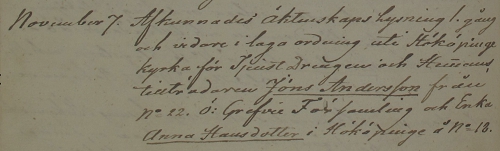 November 7. Afkunnades äktenskaps lysning 1. gång
och vidare i laga ordning uti Hököpinge
kyrka för Tjenstedrängen och Hemmans
tillträdaren Jöns Andersson från
No 22. Ö: Grefvie Församling och Enka
Anna Hansdotter i Hököpinge å No 13.